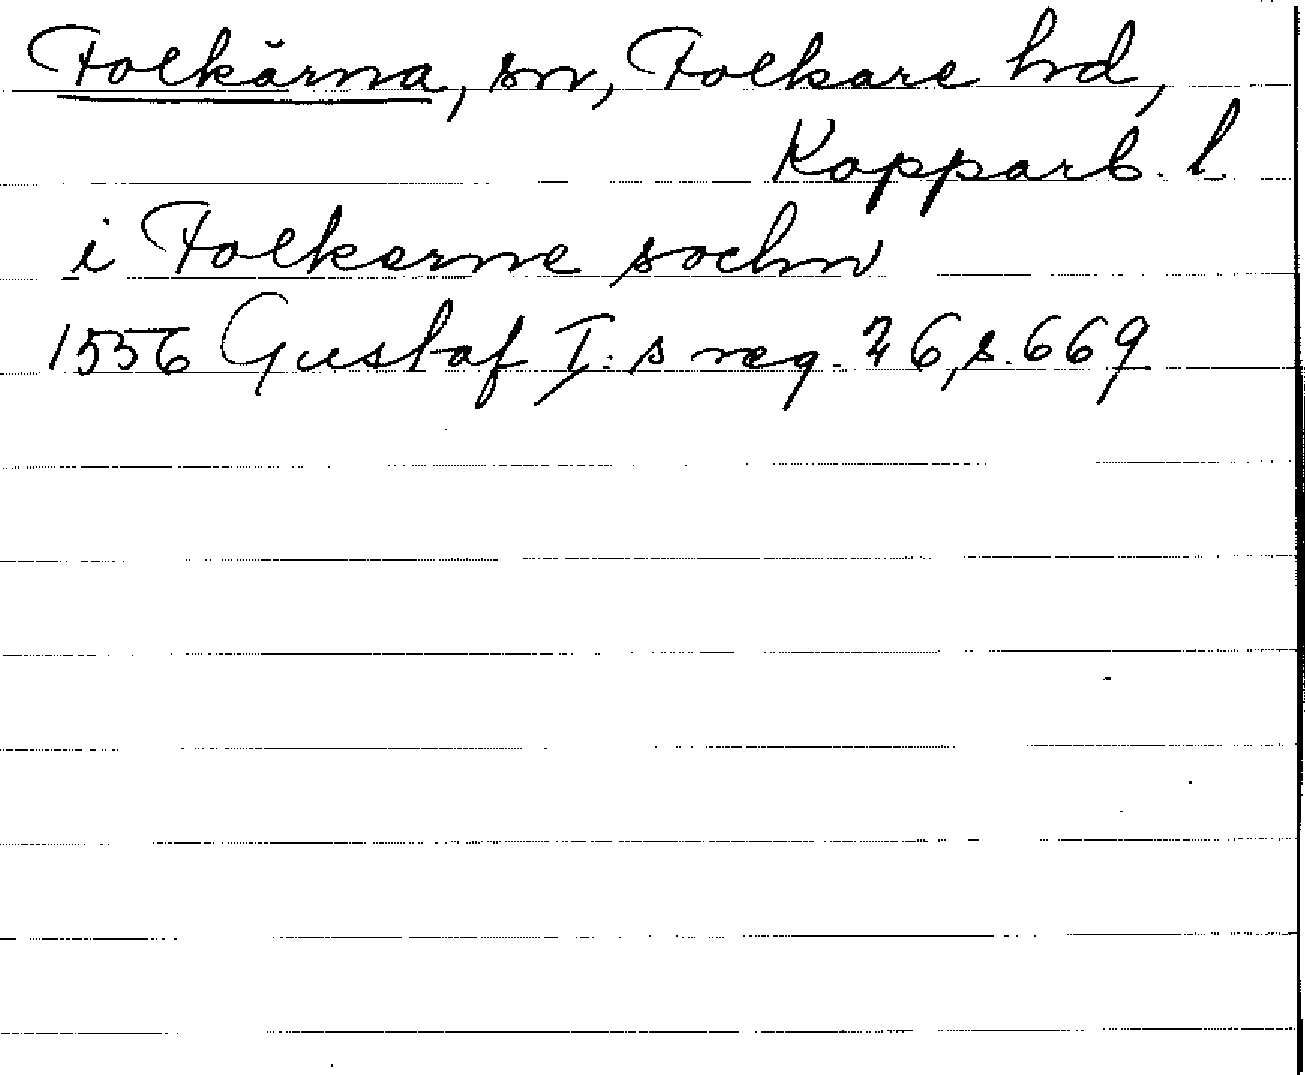 Folkärna, sn, Folkare hd,
Kopparb. l
i Folkerne sochn
1556 Gustaf I:s reg. 26, s. 669